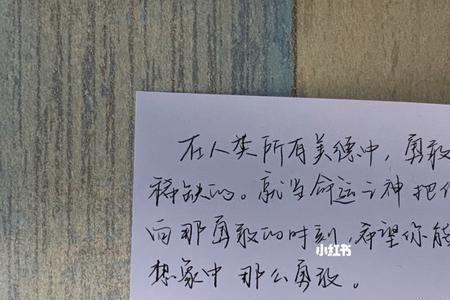 在人类所有美德中，勇敢
稀缺的。就当命运之神把
向那勇敢的时刻，希望你能
想象中那么勇敢。
小红书